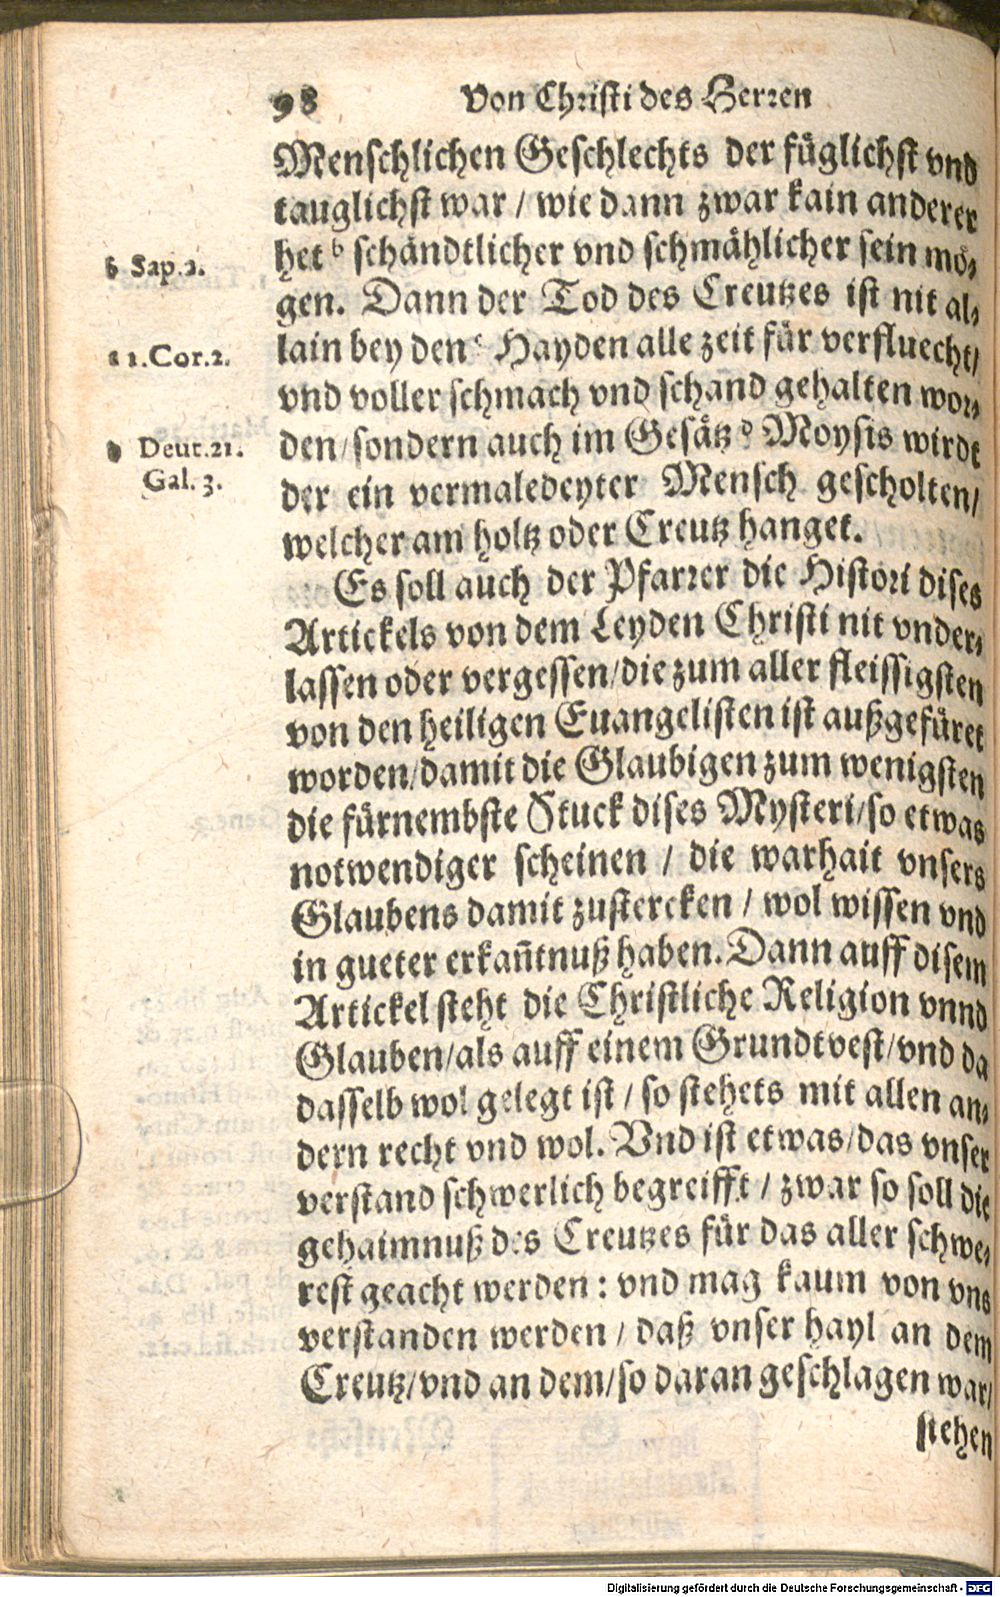 98 Von Christi des Herren
Menschlichen Geschlechts der füglichst vnd
tauglichst war / wie dann zwar kain anderer
het b schändtlicher vnd schmählicher sein mö⸗
gen. Dann der Tod des Creutzes ist nit al⸗
lain bey den c Hayden alle zeit für verfluecht/
vnd voller schmach vnd schand gehalten wor⸗
den/sondern auch im Gesätz d Moysis wirdt
der ein vermaledeyter Mensch gescholten/
welcher am holtz oder Creutz hanget.
b Sap.2.
1.Cor.2.
Deut.21.
Gal.3.
Es soll auch der Pfarrer die Histori dises
Artickels von dem Leyden Christi nit vnder⸗
lassen oder vergessen/die zum aller fleissigsten
von den heiligen Euangelisten ist außgefüret
worden/damit die Glaubigen zum wenigsten
die fürnembste Stuck dises Mysteri/so etwas
notwendiger scheinen / die warhait vnsers
Glaubens damit zustercken / wol wissen vnd
in gueter erkañtnuß haben. Dann auff disem
Artickel steht die Christliche Religion vnnd
Glauben/als auff einem Grundtvest/vnd da
dasselb wol gelegt ist / so stehets mit allen an⸗
dern recht vnd wol. Vnd ist etwas/das vnser
verstand schwerlich begreifft / zwar so soll die
gehaimnuß des Creutzes für das aller schwe⸗
rest geacht werden: vnd mag kaum von vns
verstanden werden / daß vnser hayl an dem
Creutz/vnd an dem/so daran geschlagen war/
stehen
Digitalisierung gefördert durch die Deutsche Forschungsgemeinschaft - DFG